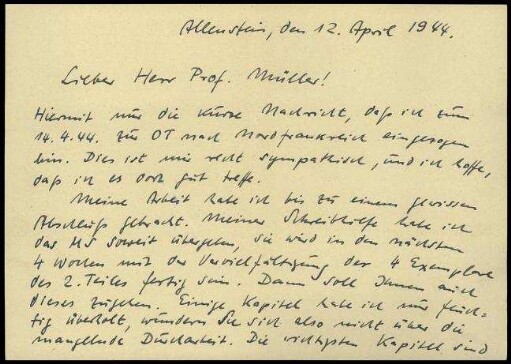 Allenstein, den 12. April 1944.
Lieber Herr Prof. Müller!
Hiermit nur die kurze Nachricht, daß ich zum
14.4.44. zur OT nach Nordfrankreich eingezogen
bin. Dies ist mir recht sympathisch, und ich hoffe,
daß ich es dort gut treffe.
Meine Arbeit habe ich bis zu einem gewissen
Abschluß gebracht. Meiner Schreibhilfe habe ich
das MS soweit übergeben, sie wird in den nächsten
4 Wochen mit der Vervielfältigung der 4 Exemplare
des 2. Teiles fertig sein. Dann soll Ihnen auch
dieses zugehen. Einige Kapitel habe ich nur flüch-
tig überholt, wundern Sie sich also nicht über die
mangelnde Durcharbeit. Die wichtigsten Kapitel sind